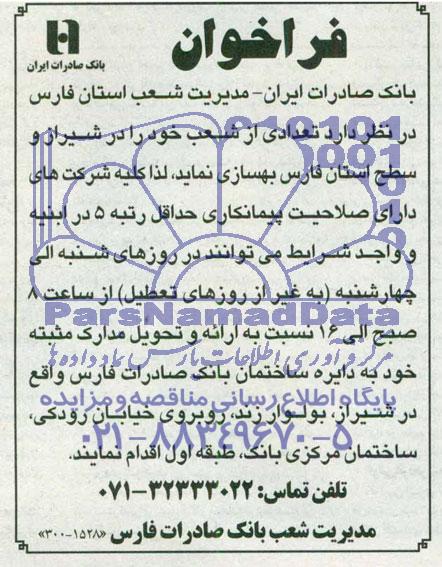 فراخوان
بانک صادرات ایران
بانک صادرات ایران - مدیریت شعب استان فارس
در نظر دارد تعدادی از شعب خود را در شیراز و
سطح استان فارس بهسازی نماید، لذا کلیه شرکت های
دارای صلاحیت پیمانکاری حداقل رتبه ۵ در ابنیه
و واجد شرایط می توانند در روزهای شنبه الی
چهارشنبه (به غیر از روزهای تعطیل) از ساعت ۸
صبح الی ۱۶ نسبت به ارائه و تحویل مدارک مثبته
خود به دایره ساختمان بانک صادرات فارس واقع
در شیراز، بولوار زند، روبروی خیابان رودکی،
ساختمان مرکزی بانک، طبقه اول اقدام نمایند.
تلفن تماس: ۳۲۳۳۳۰۲۲-۰۷۱
مدیریت شعب بانک صادرات فارس «۱۵۲۸-۳۰۰»
ParsNamadData
مرکز فرآوری اطلاعات پارس نماد داده ها
پایگاه اطلاع رسانی مناقصه و مزایده
۰۲۱-۸۸۳۴۹۶۷۰-۵